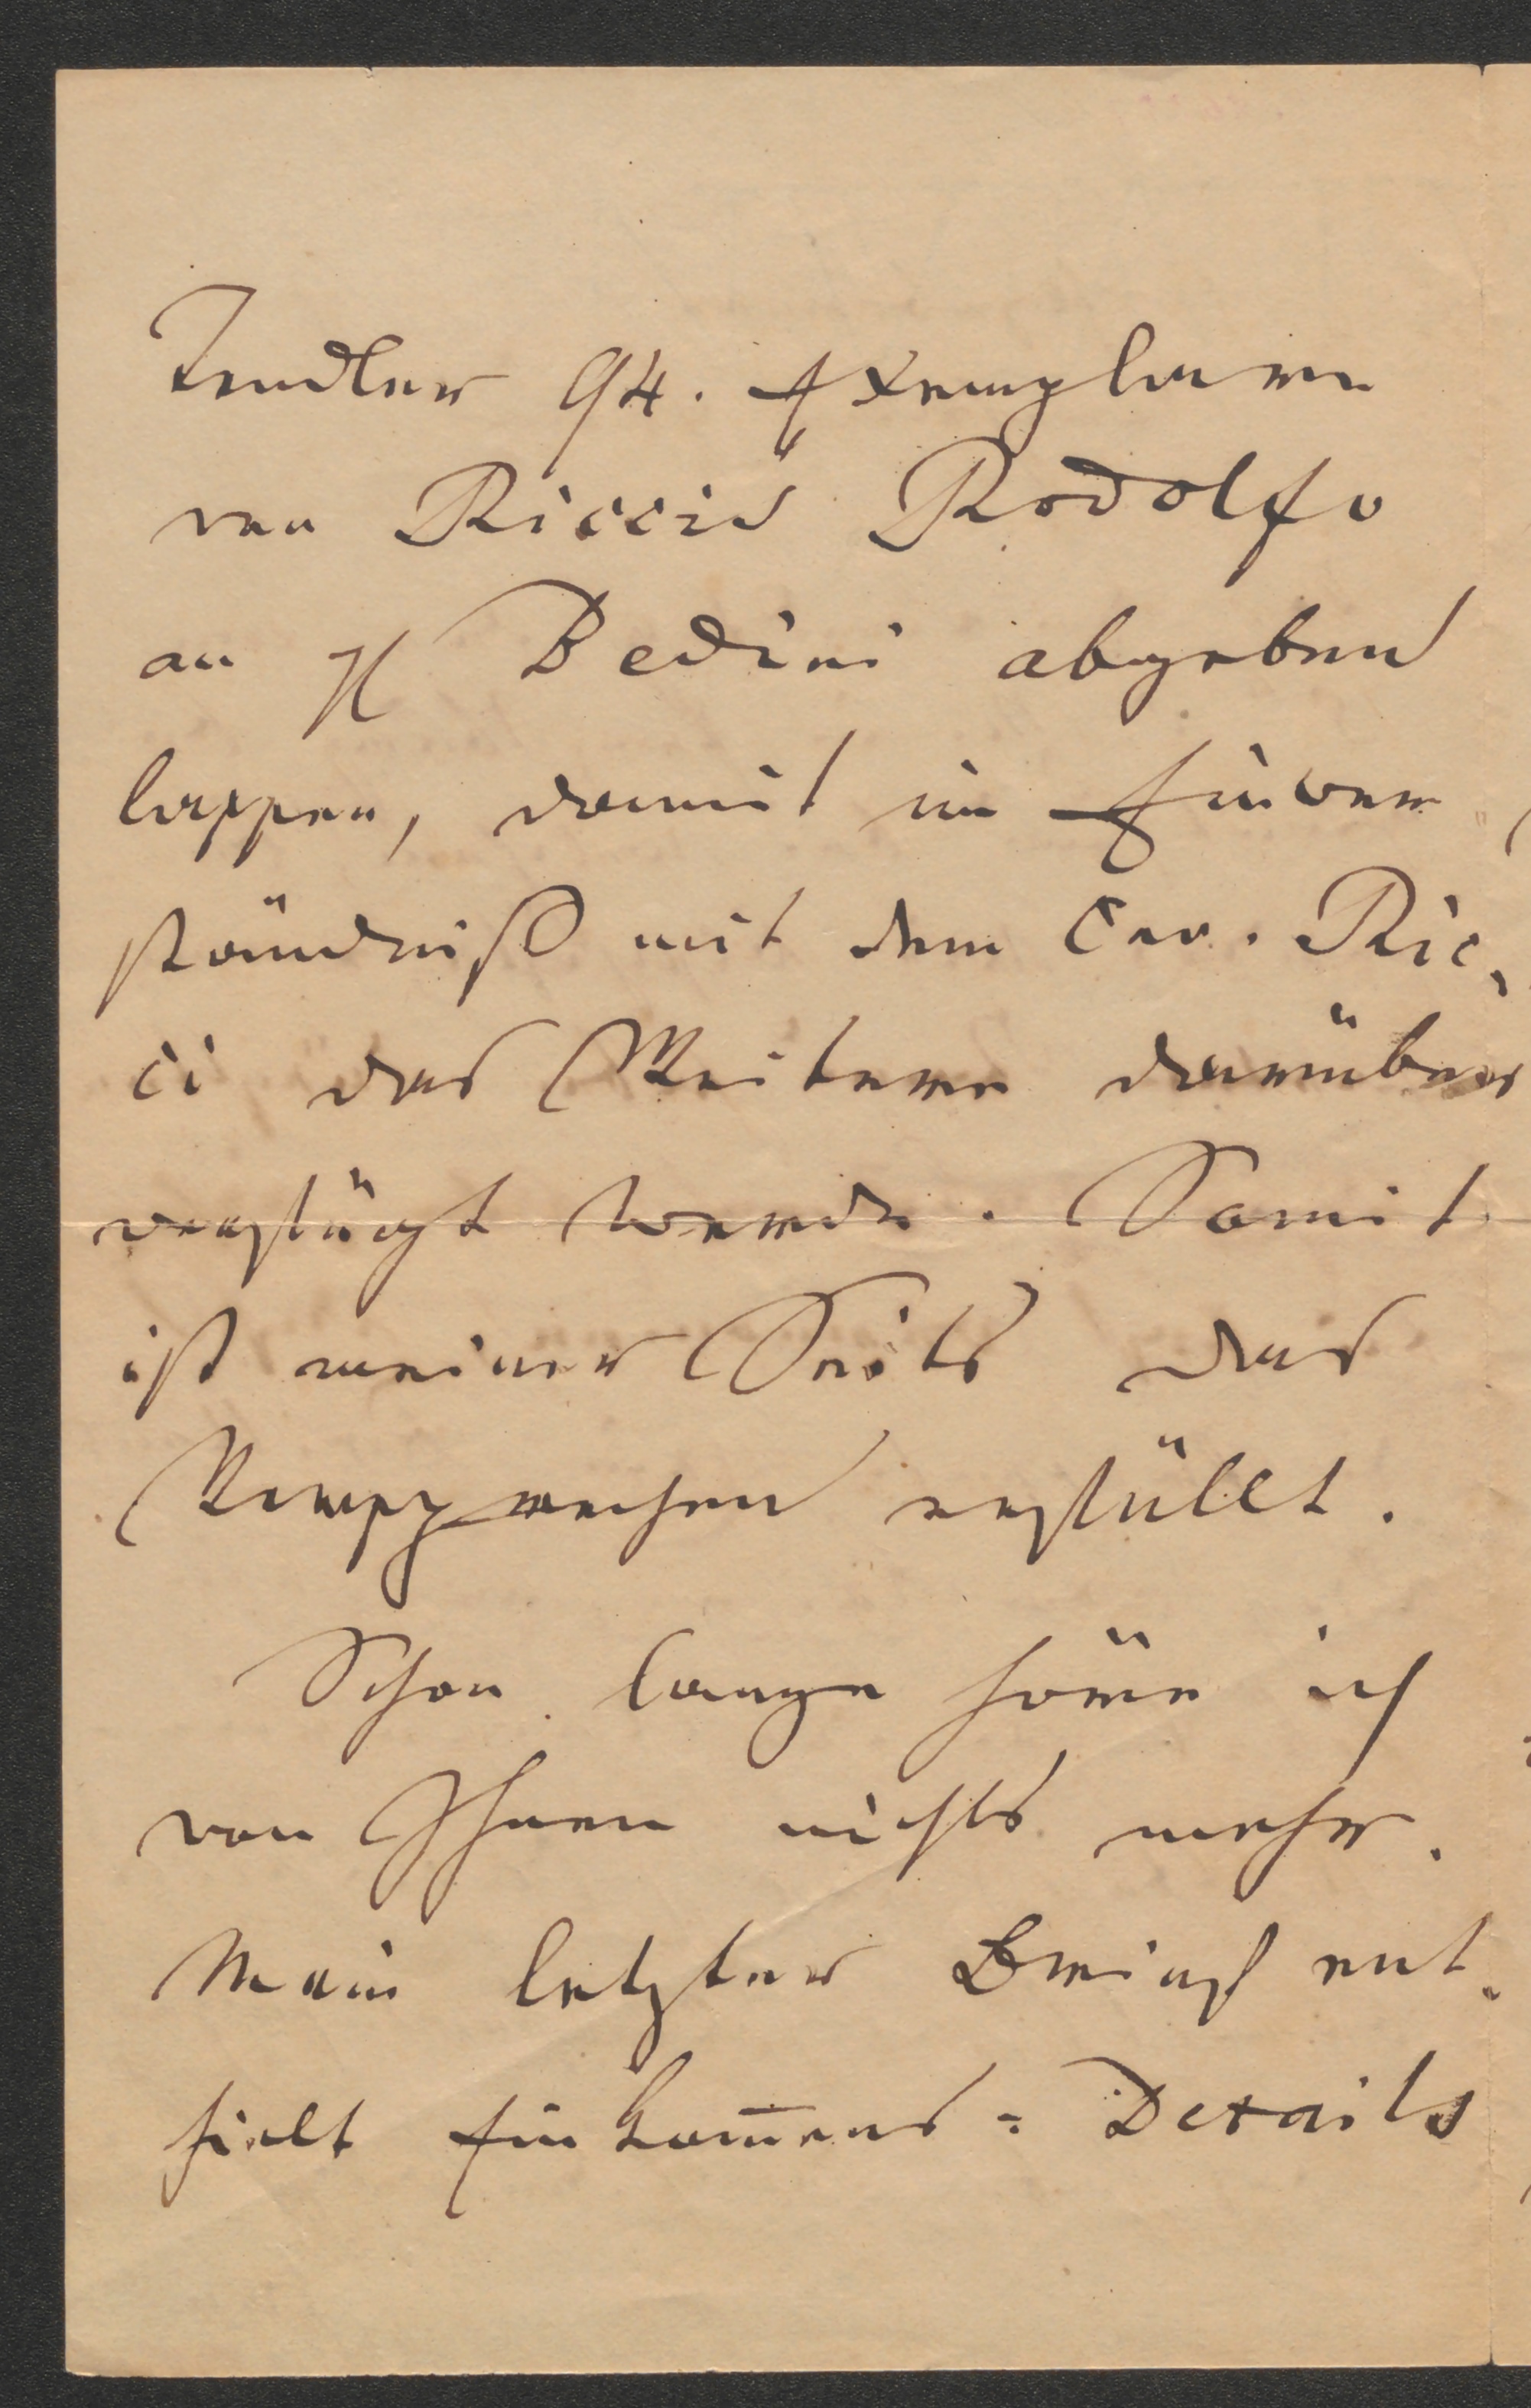 Tendler 94. Exemplare
von Riccis Rodolfo
an H Bedini abgeben
lassen, damit im Einver
ständniß mit dem Cav. Ric,
ci das Weitere darüber
verfügt werde. Somit
ist meiner Seits das
Versprechen erfüllt.
Schon lange höre ich
von Ihnen nichts mehr.
Mein letzter Brief ent-
hielt Einkom̅ens = Details